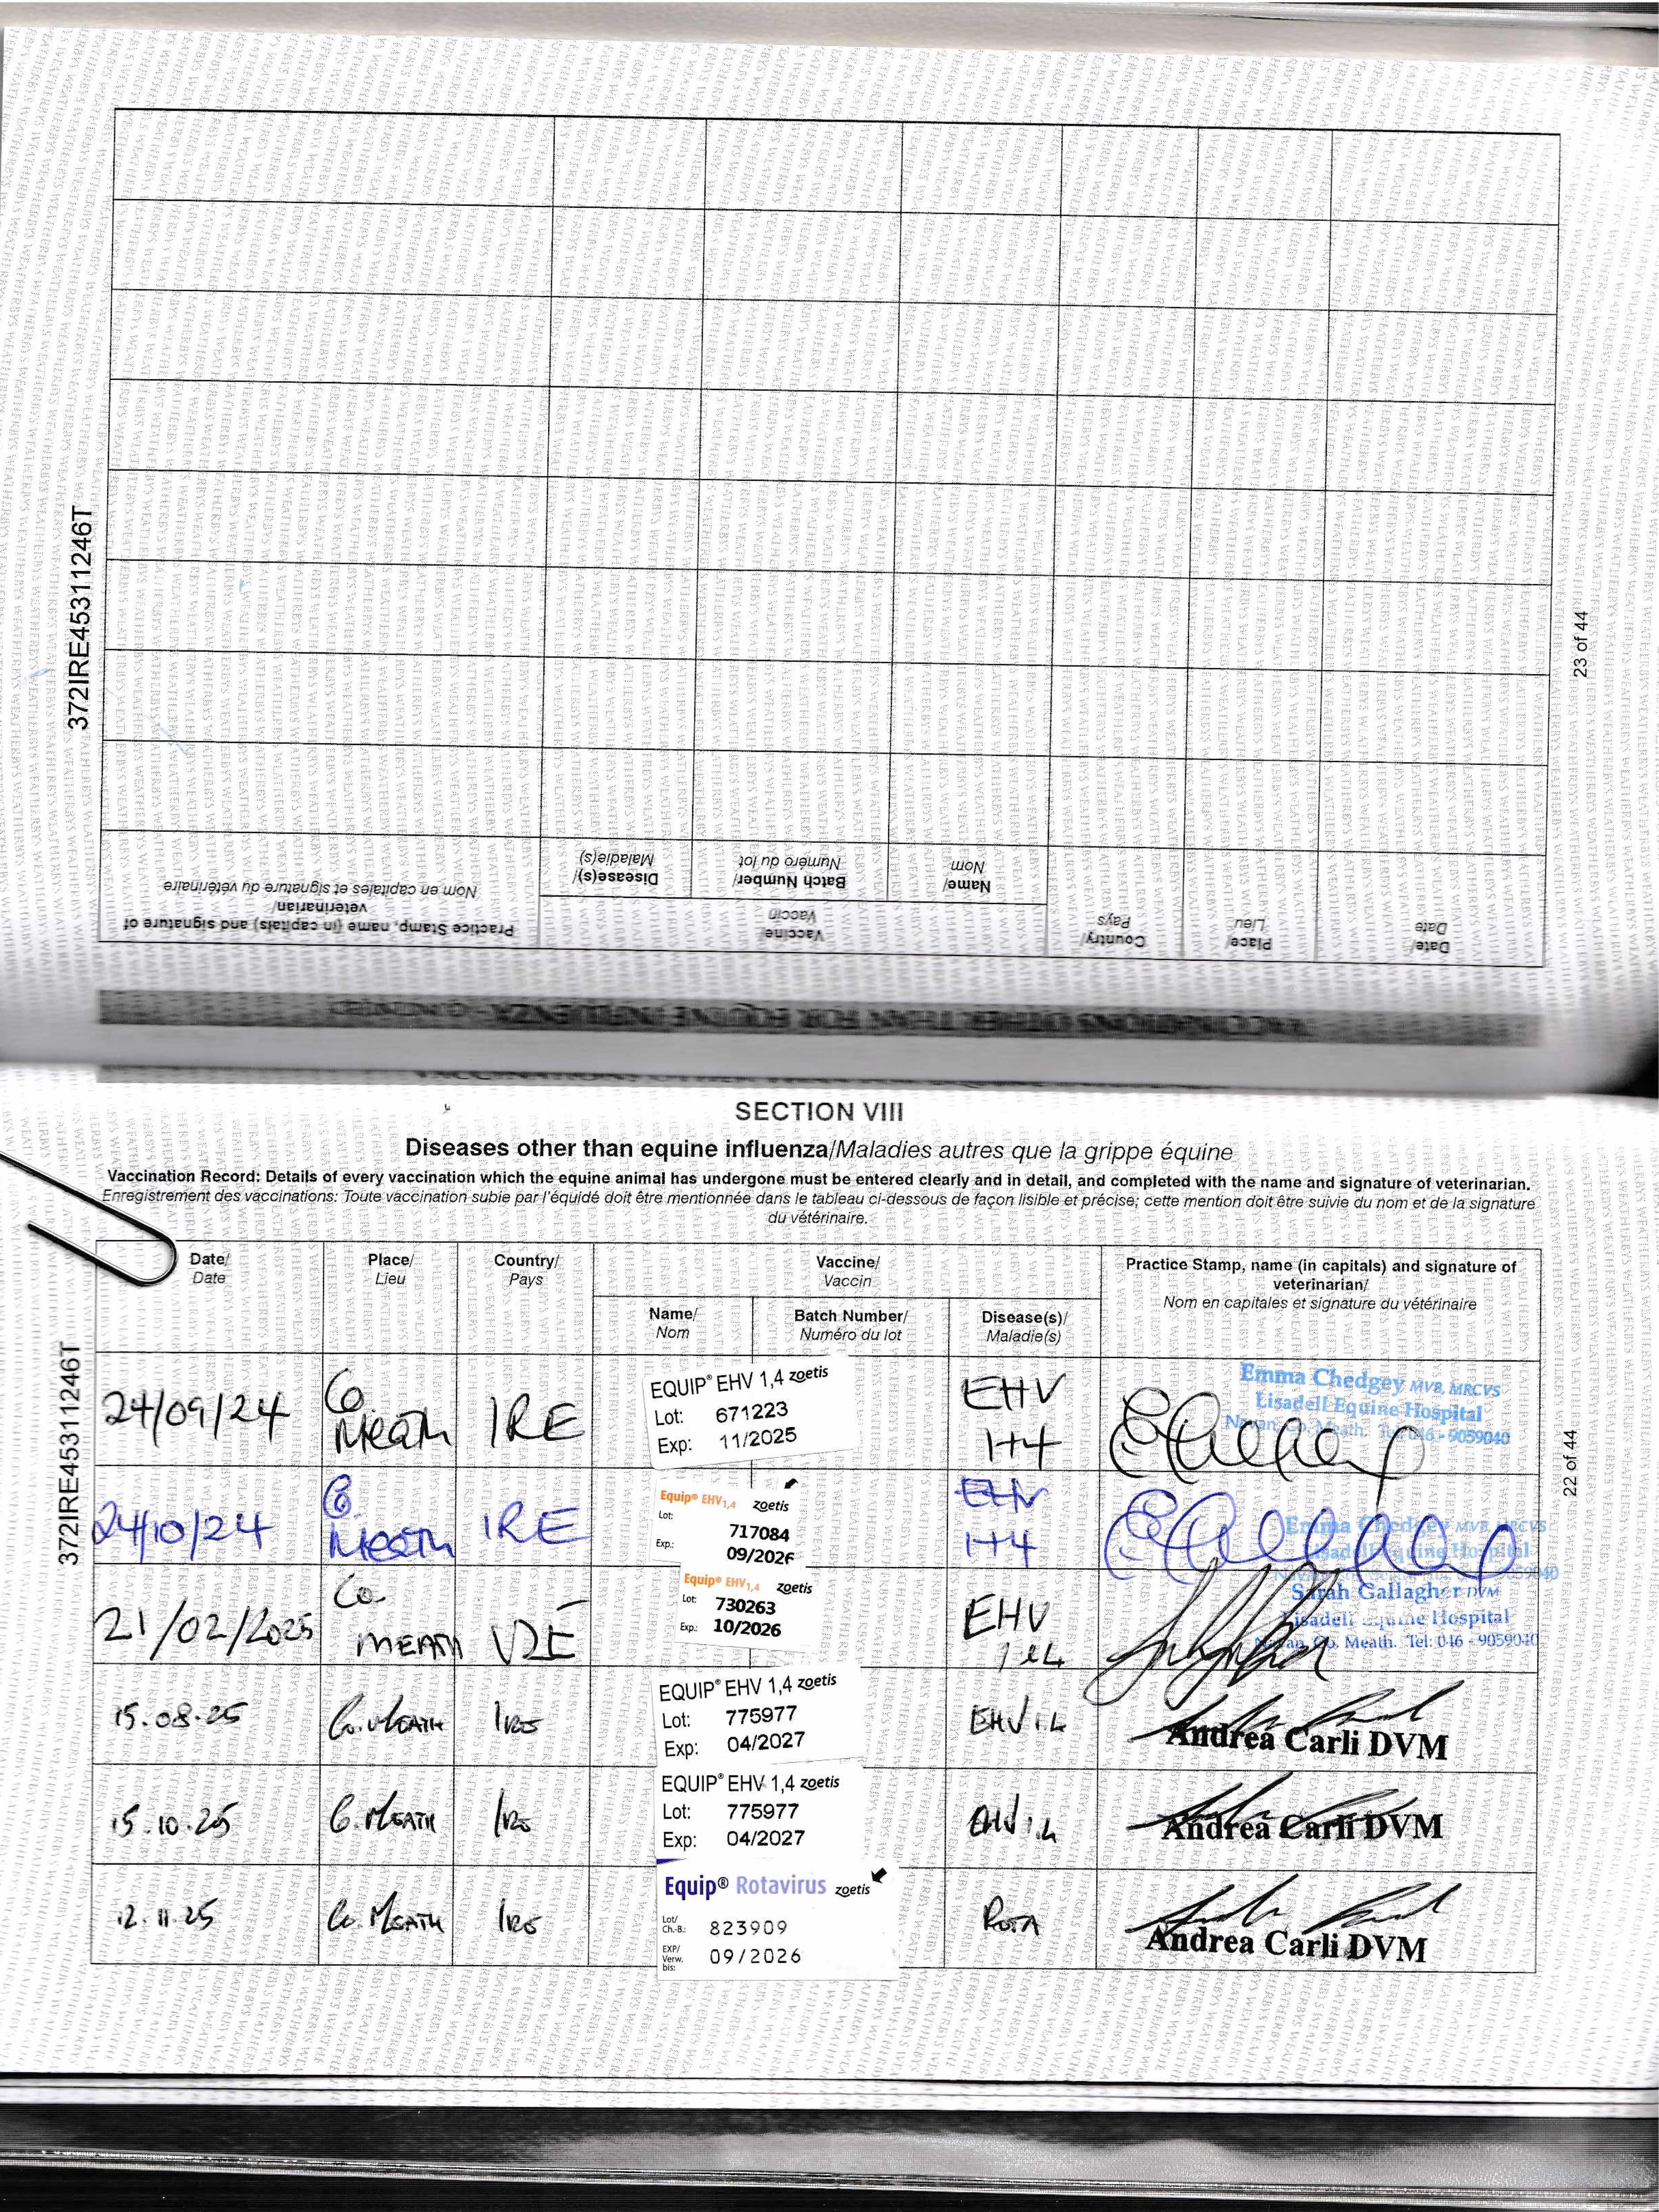 372IRE453111246T
23 of 44
VACCINATIONS OTHER THAN FOR EQUINE INFLUENZA - CONTINUED
Date/
Date
Place/
Lieu
Country/
Pays
Vaccine/
Vaccin
Name/
Nom
Batch Number/
Numéro du lot
Disease(s)/
Maladie(s)
Practice Stamp, name (in capitals) and signature of
veterinarian/
Nom en capitales et signature du vétérinaire
SECTION VIII
Diseases other than equine influenza/Maladies autres que la grippe équine
Vaccination Record: Details of every vaccination which the equine animal has undergone must be entered clearly and in detail, and completed with the name and signature of veterinarian.
Enregistrement des vaccinations: Toute vaccination subie par l'équidé doit être mentionnée dans le tableau ci-dessous de façon lisible et précise; cette mention doit être suivie du nom et de la signature
du vétérinaire.
372IRE453111246T
22 of 44
Date/
Date
Place/
Lieu
Country/
Pays
Vaccine/
Vaccin
Name/
Nom
Batch Number/
Numéro du lot
Disease(s)/
Maladie(s)
Practice Stamp, name (in capitals) and signature of
veterinarian/
Nom en capitales et signature du vétérinaire
24/09/24
Co.
Meath
IRE
EQUIP® EHV 1,4 zoetis
Lot: 671223
Exp: 11/2025
EHV
1+4
Emma Chedgey MVB, MRCVS
Lisadell Equine Hospital
Navan, Co. Meath. Tel: 046 - 9059040
24/10/24
Co.
Meath
IRE
Equip® EHV1,4 zoetis
Lot: 717084
Exp.: 09/2026
EHV
1+4
Emma Chedgey MVB, MRCVS
Lisadell Equine Hospital
21/02/2025
Co.
MEATH
IRE
Equip® EHV1,4 zoetis
Lot: 730263
Exp.: 10/2026
EHV
1&4
Sarah Gallagher DVM
Lisadell Equine Hospital
Navan, Co. Meath. Tel: 046 - 9059040
15.08.25
Co. MEATH
IRE
EQUIP® EHV 1,4 zoetis
Lot: 775977
Exp: 04/2027
EHV 1.4
Andrea Carli DVM
15.10.25
Co. MEATH
IRE
EQUIP® EHV 1,4 zoetis
Lot: 775977
Exp: 04/2027
EHV 1.4
Andrea Carli DVM
12.11.25
Co. MEATH
IRE
Equip® Rotavirus zoetis
Lot/
Ch.-B.: 823909
EXP/
Verw.
bis: 09/2026
ROTA
Andrea Carli DVM